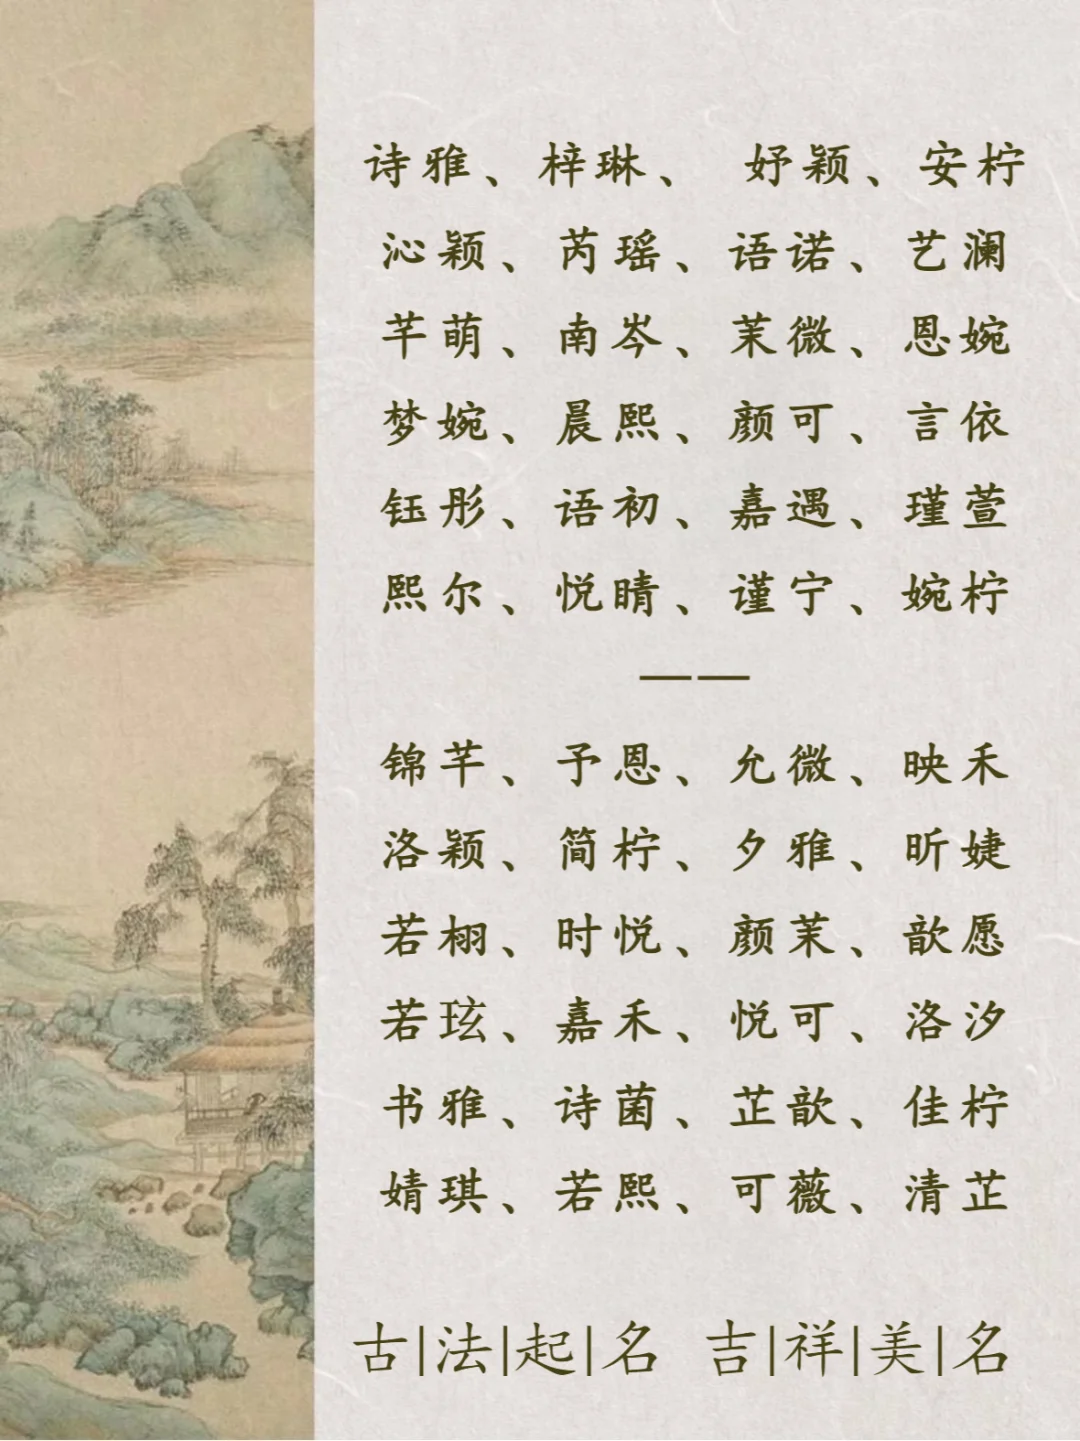 诗雅、梓琳、 妤颖、安柠
沁颖、芮瑶、语诺、艺澜
芊萌、南岑、茉微、恩婉
梦婉、晨熙、颜可、言依
钰彤、语初、嘉遇、瑾萱
熙尔、悦晴、谨宁、婉柠
——
锦芊、予恩、允微、映禾
洛颖、简柠、夕雅、昕婕
若栩、时悦、颜茉、歆愿
若玹、嘉禾、悦可、洛汐
书雅、诗菌、芷歆、佳柠
婧琪、若熙、可薇、清芷
古|法|起|名 吉|祥|美|名